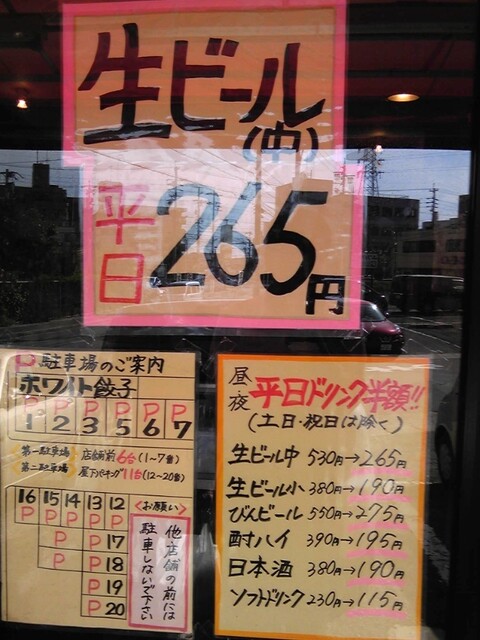 生ビール
(中)
平日
265円
P駐車場のご案内
ホワイト餃子
P P P P P P
1 2 3 5 6 7
第一駐車場 店舗前6台(1~7番)
第二駐車場 屋下パーキング11台(12~20番)
16 15 14 13 12
P P P P P
P P17
P P18
P19
P20
<お願い>
他店舗の前には
駐車しないで下さい
昼夜 平日ドリンク半額!!
(土日・祝日は除く)
生ビール中 530円→265円
生ビール小 380円→190円
びんビール 550円→275円
酎ハイ 390円→195円
日本酒 380円→190円
ソフトドリンク 230円→115円